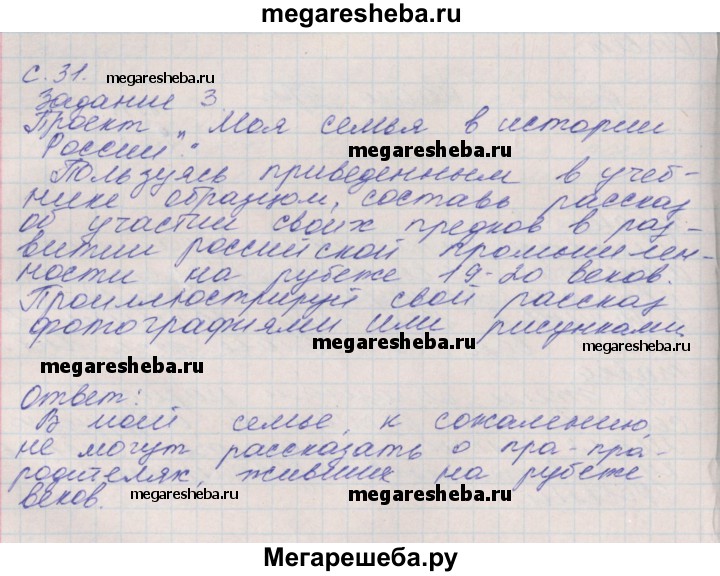 megaresheba.ru
с. 31.
megaresheba.ru
Задание 3
Проект „Моя семья в истории
России".
megaresheba.ru
Пользуясь приведенным в учеб-
нике образцом, составь рассказ
об участии своих предков в раз-
витии российской промышлен-
ности на рубеже 19-20 веков.
Проиллюстрируй свой рассказ
фотографиями или рисунками
megaresheba.ru
megaresheba.ru
megaresheba.ru
Ответ:
В моей семье, к сожалению,
не могут рассказать о пра-пра-
родителях, живших на рубеже
веков.
megaresheba.ru
megaresheba.ru
megaresheba.ru
Мегарешеба.ру